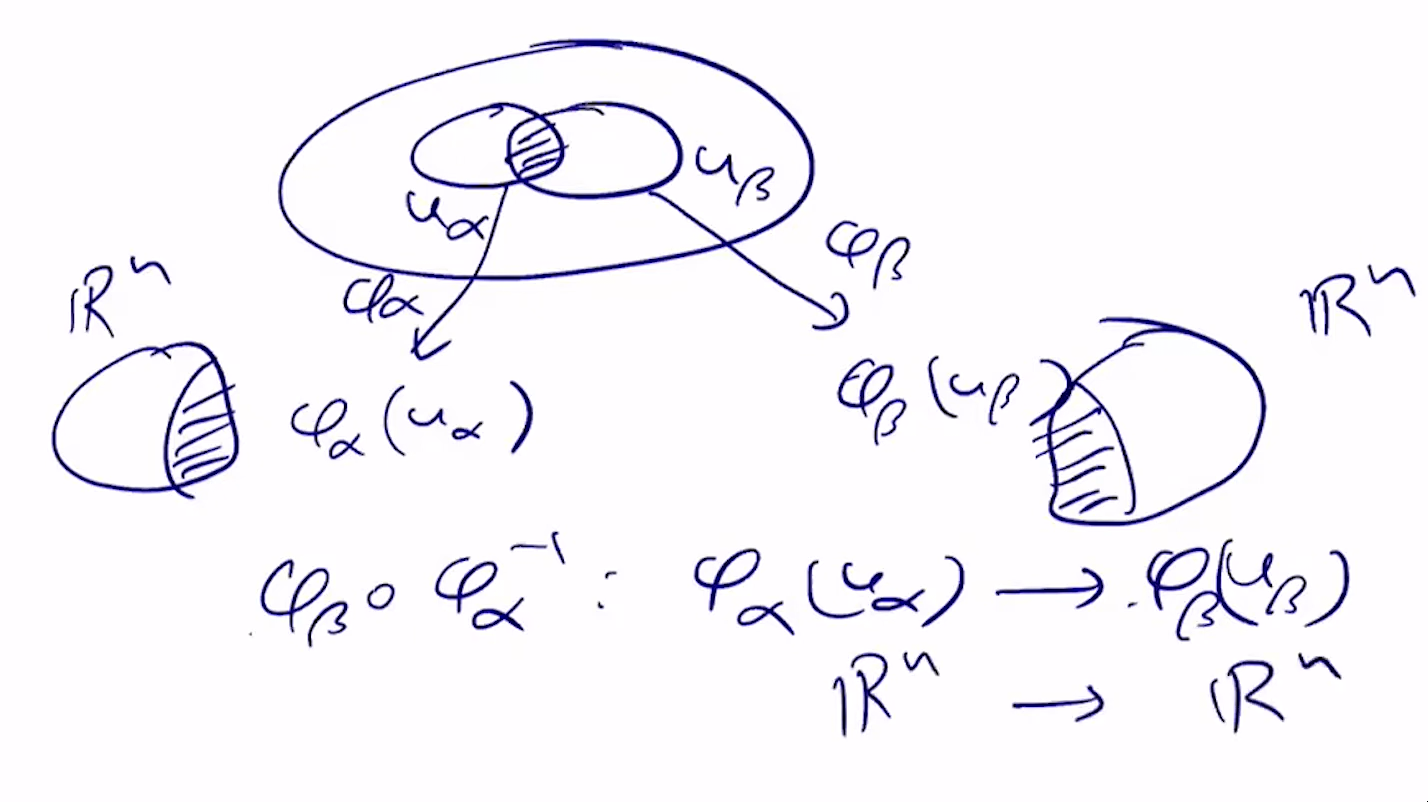 u_β
u_α
φ_β
ℝⁿ
φ_α
ℝⁿ
φ_α(u_α)
φ_β(u_β)
φ_β ∘ φ_α⁻¹ : φ_α(u_α) → φ_β(u_β)
ℝⁿ → ℝⁿ